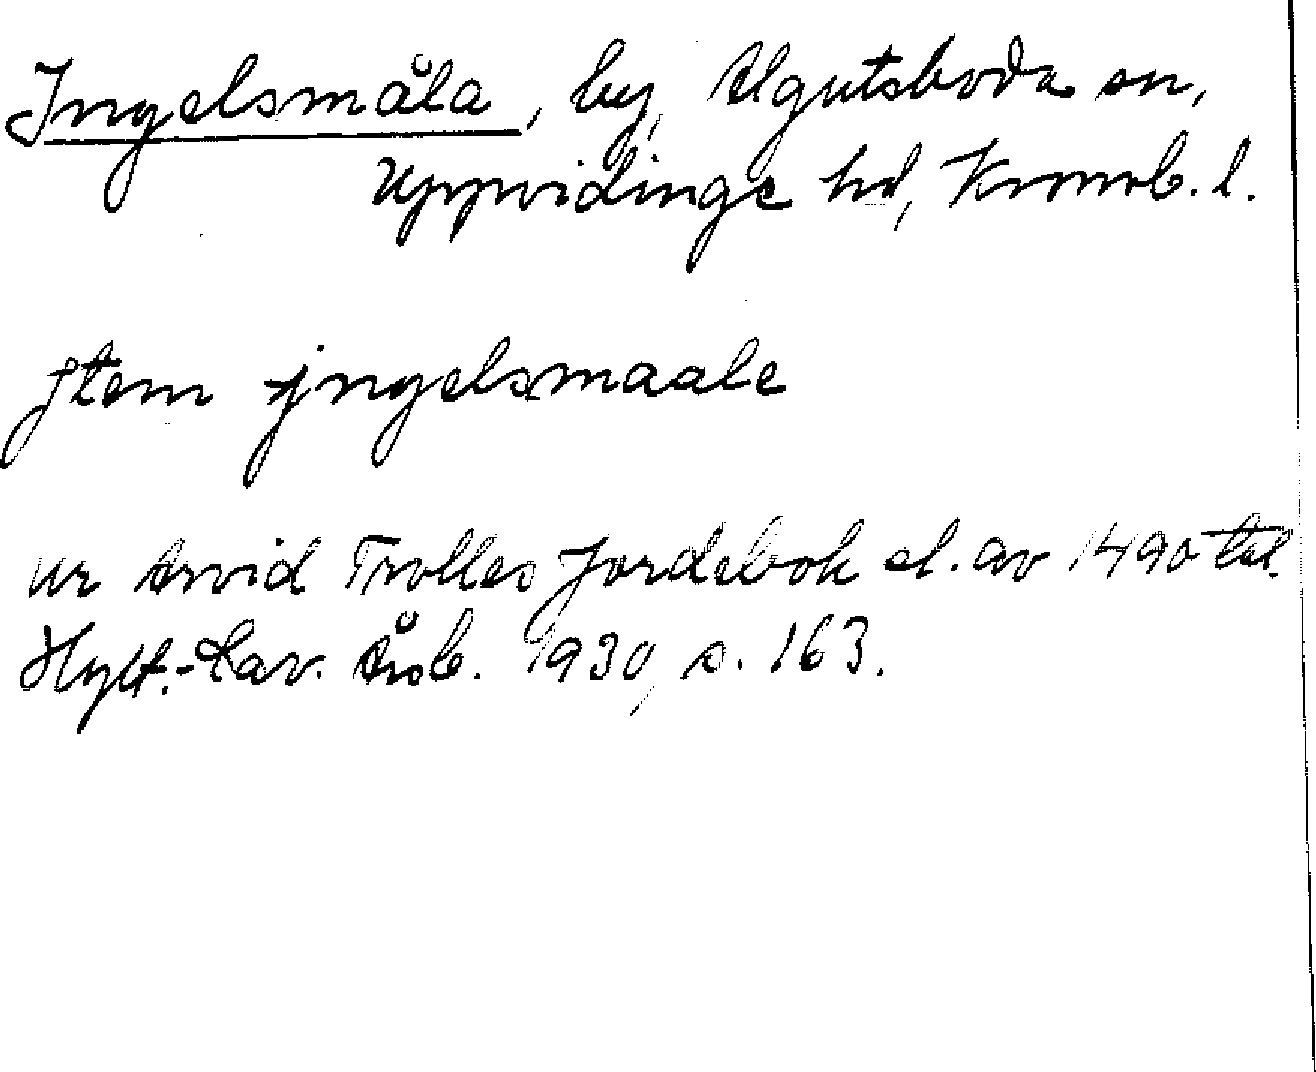 Ingelsmåla, by, Algutsboda sn,
Uppvidinge hd, Kronob. l.
jtem jngelsmaale
ur Arvid Trolles Jordebok el. av 1490 tal.
Hylt.-Cav. Årsb. 1930, s. 163.